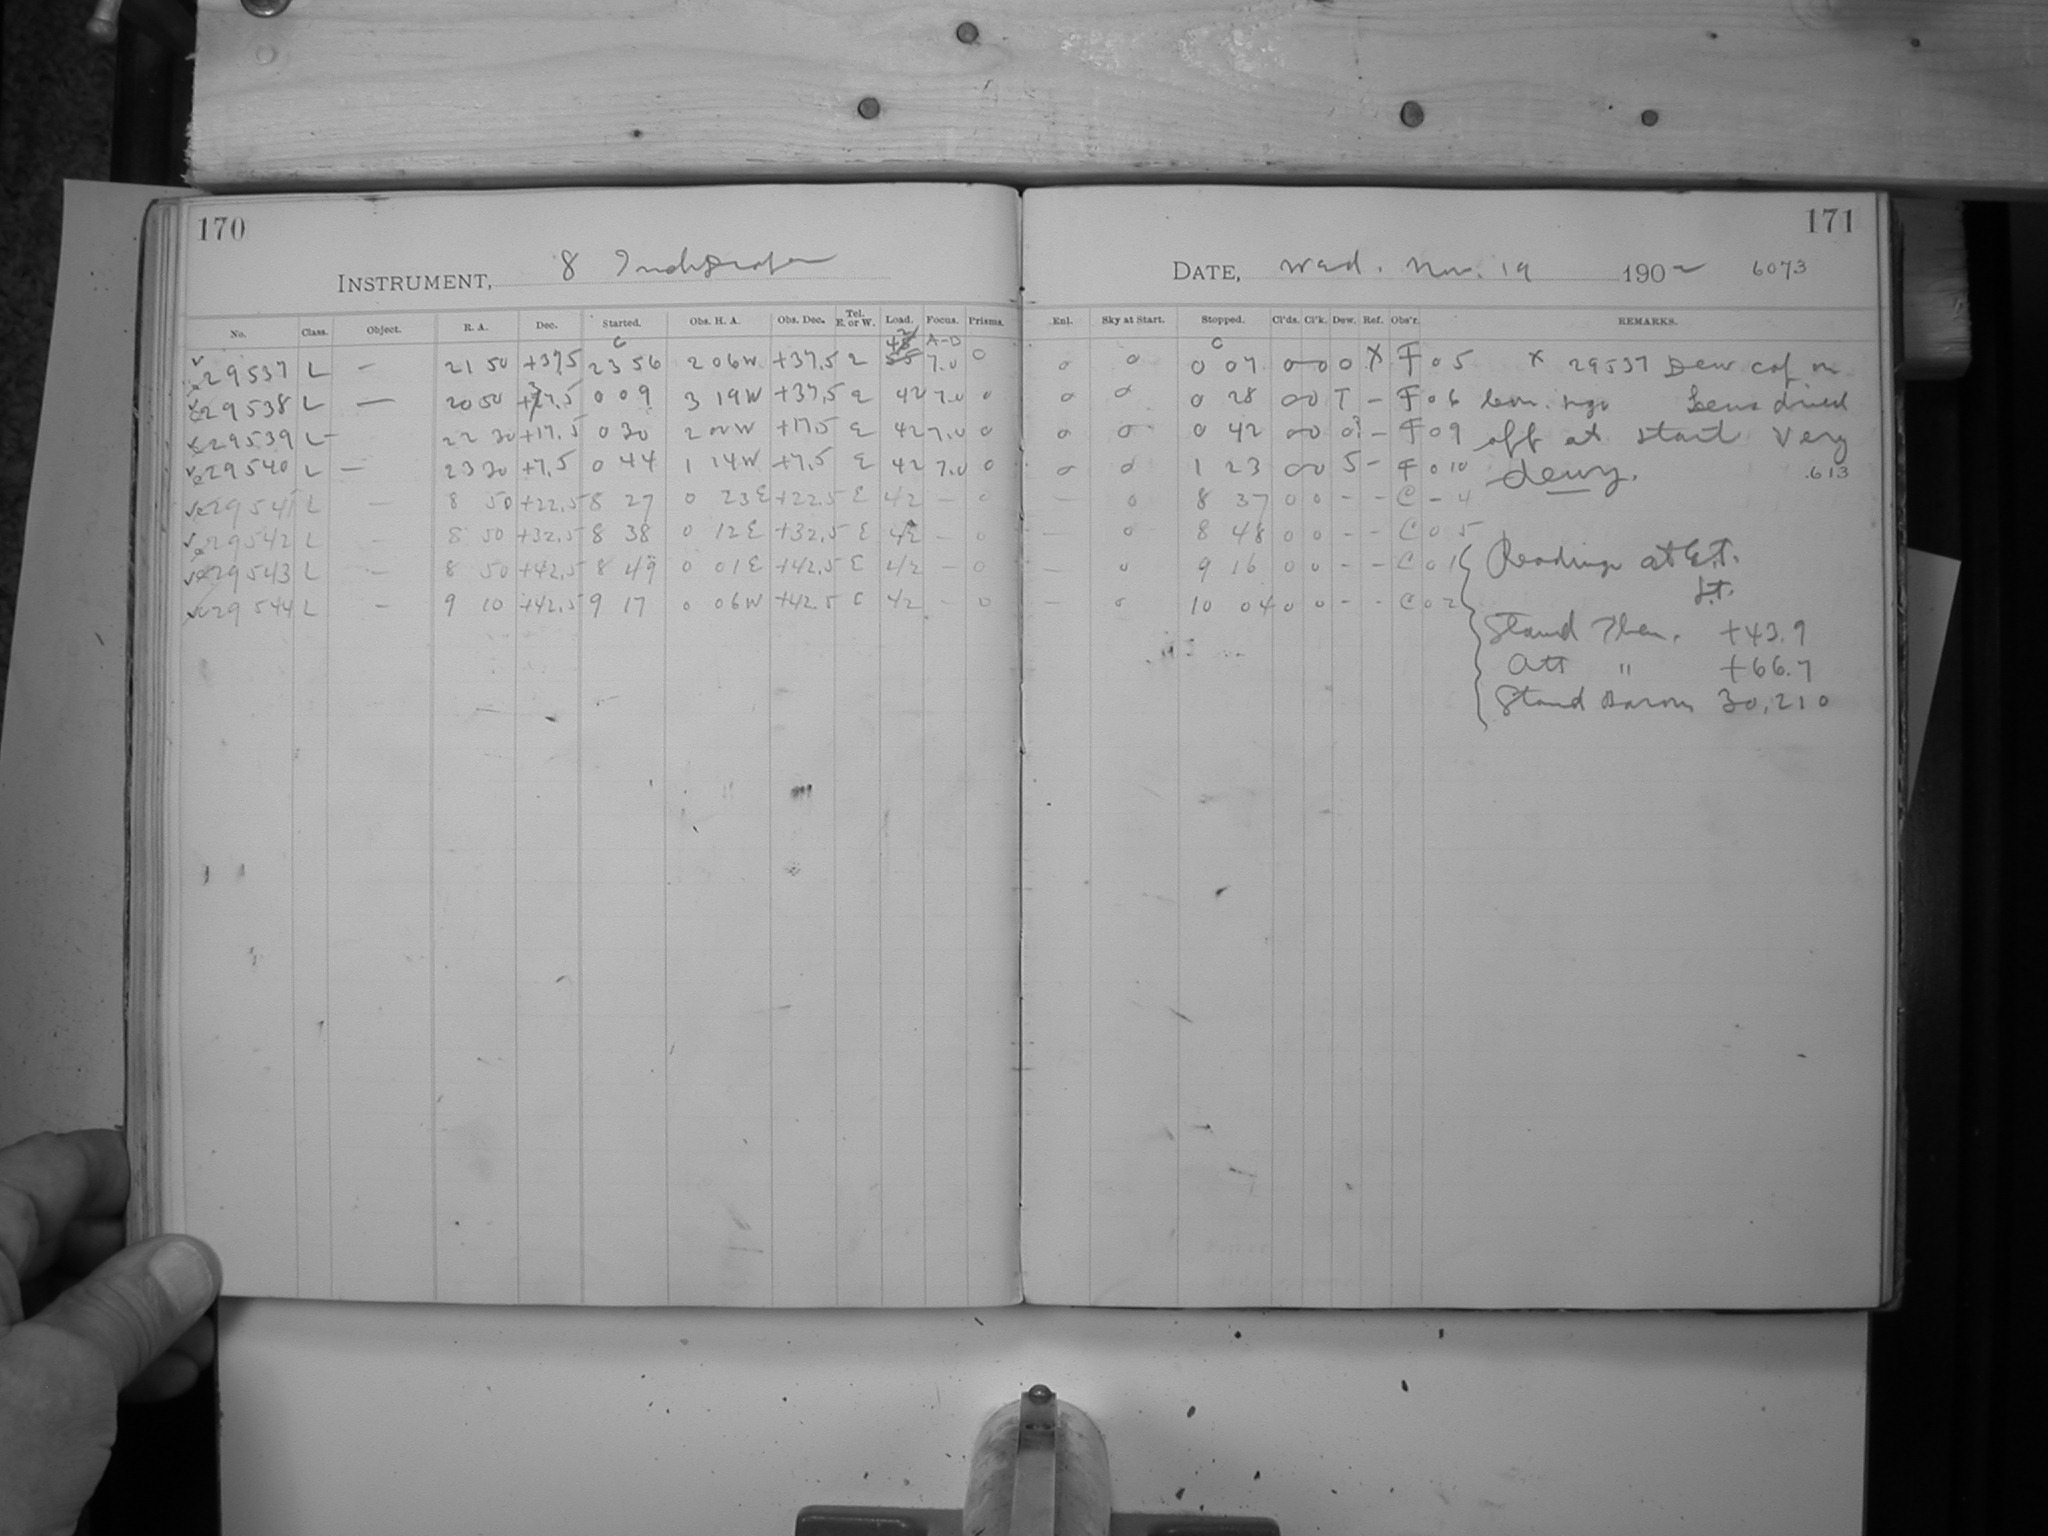 170
171
INSTRUMENT, 8 Inch Draper
DATE, Wed. Nov. 19 1902 6073
No. Class. Object. R. A. Dec. Started. Obs. H. A. Obs. Dec. Tel. E. or W. Load. Focus. Prisms. Enl. Sky at Start. Stopped. Cl'ds. Cl'k. Dew. Ref. Obs'r. REMARKS.
c A-D c
29537 L — 21 50 +37.5 23 56 2 06W +37.5 E 7.0 0 0 0 0 07 0 0 0 X F 05 x 29537 Dew cap on
29538 L — 20 50 +37.5 0 09 3 19W +37.5 E 42 7.0 0 0 0 0 28 0 0 T – F 06 Lens dried
29539 L – 22 30 +17.5 0 30 2 00W +17.5 E 42 7.0 0 0 0 0 42 0 0 0? – F 09 off at start Very
29540 L — 23 30 +7.5 0 44 1 14W +7.5 E 42 7.0 0 0 0 1 23 0 0 S – F 010 dewy. .613
29541 L — 8 50 +22.5 8 27 0 23E +22.5 E 42 – 0 — 0 8 37 0 0 - - C – 4
29542 L — 8 50 +32.5 8 38 0 12E +32.5 E 42 – 0 — 0 8 48 0 0 - - C 0 5
29543 L — 8 50 +42.5 8 49 0 01E +42.5 E 42 – 0 — 0 9 16 0 0 - - C 0 1 Readings at E.T.
S.T.
29544 L — 9 10 +42.5 9 17 0 06W +42.5 E 42 – 0 — 0 10 04 0 0 - - C 0 2
Stand Ther. +43.9
Att " +66.7
Stand Barom 30,210